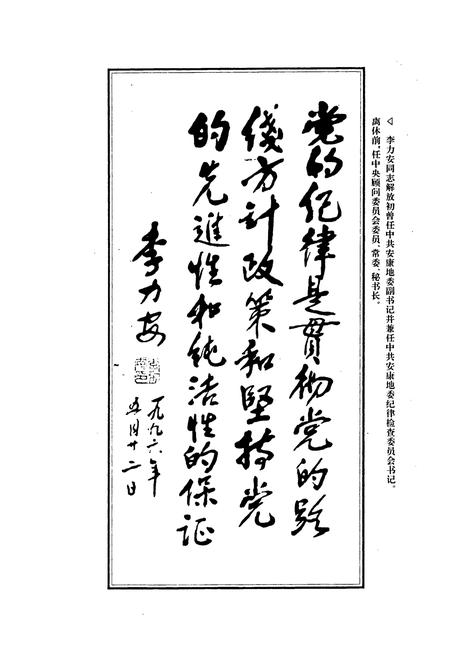 ◁ 李力安同志解放初曾任中共安康地委副书记并兼任中共安康地委纪律检查委员会书记。
离休前，任中央顾问委员会委员、常委、秘书长。
党的纪律是貫彻党的路
线方计政策和坚持党
的先進性和纯洁性的保证
李力安
一九九六年
五月廿二日